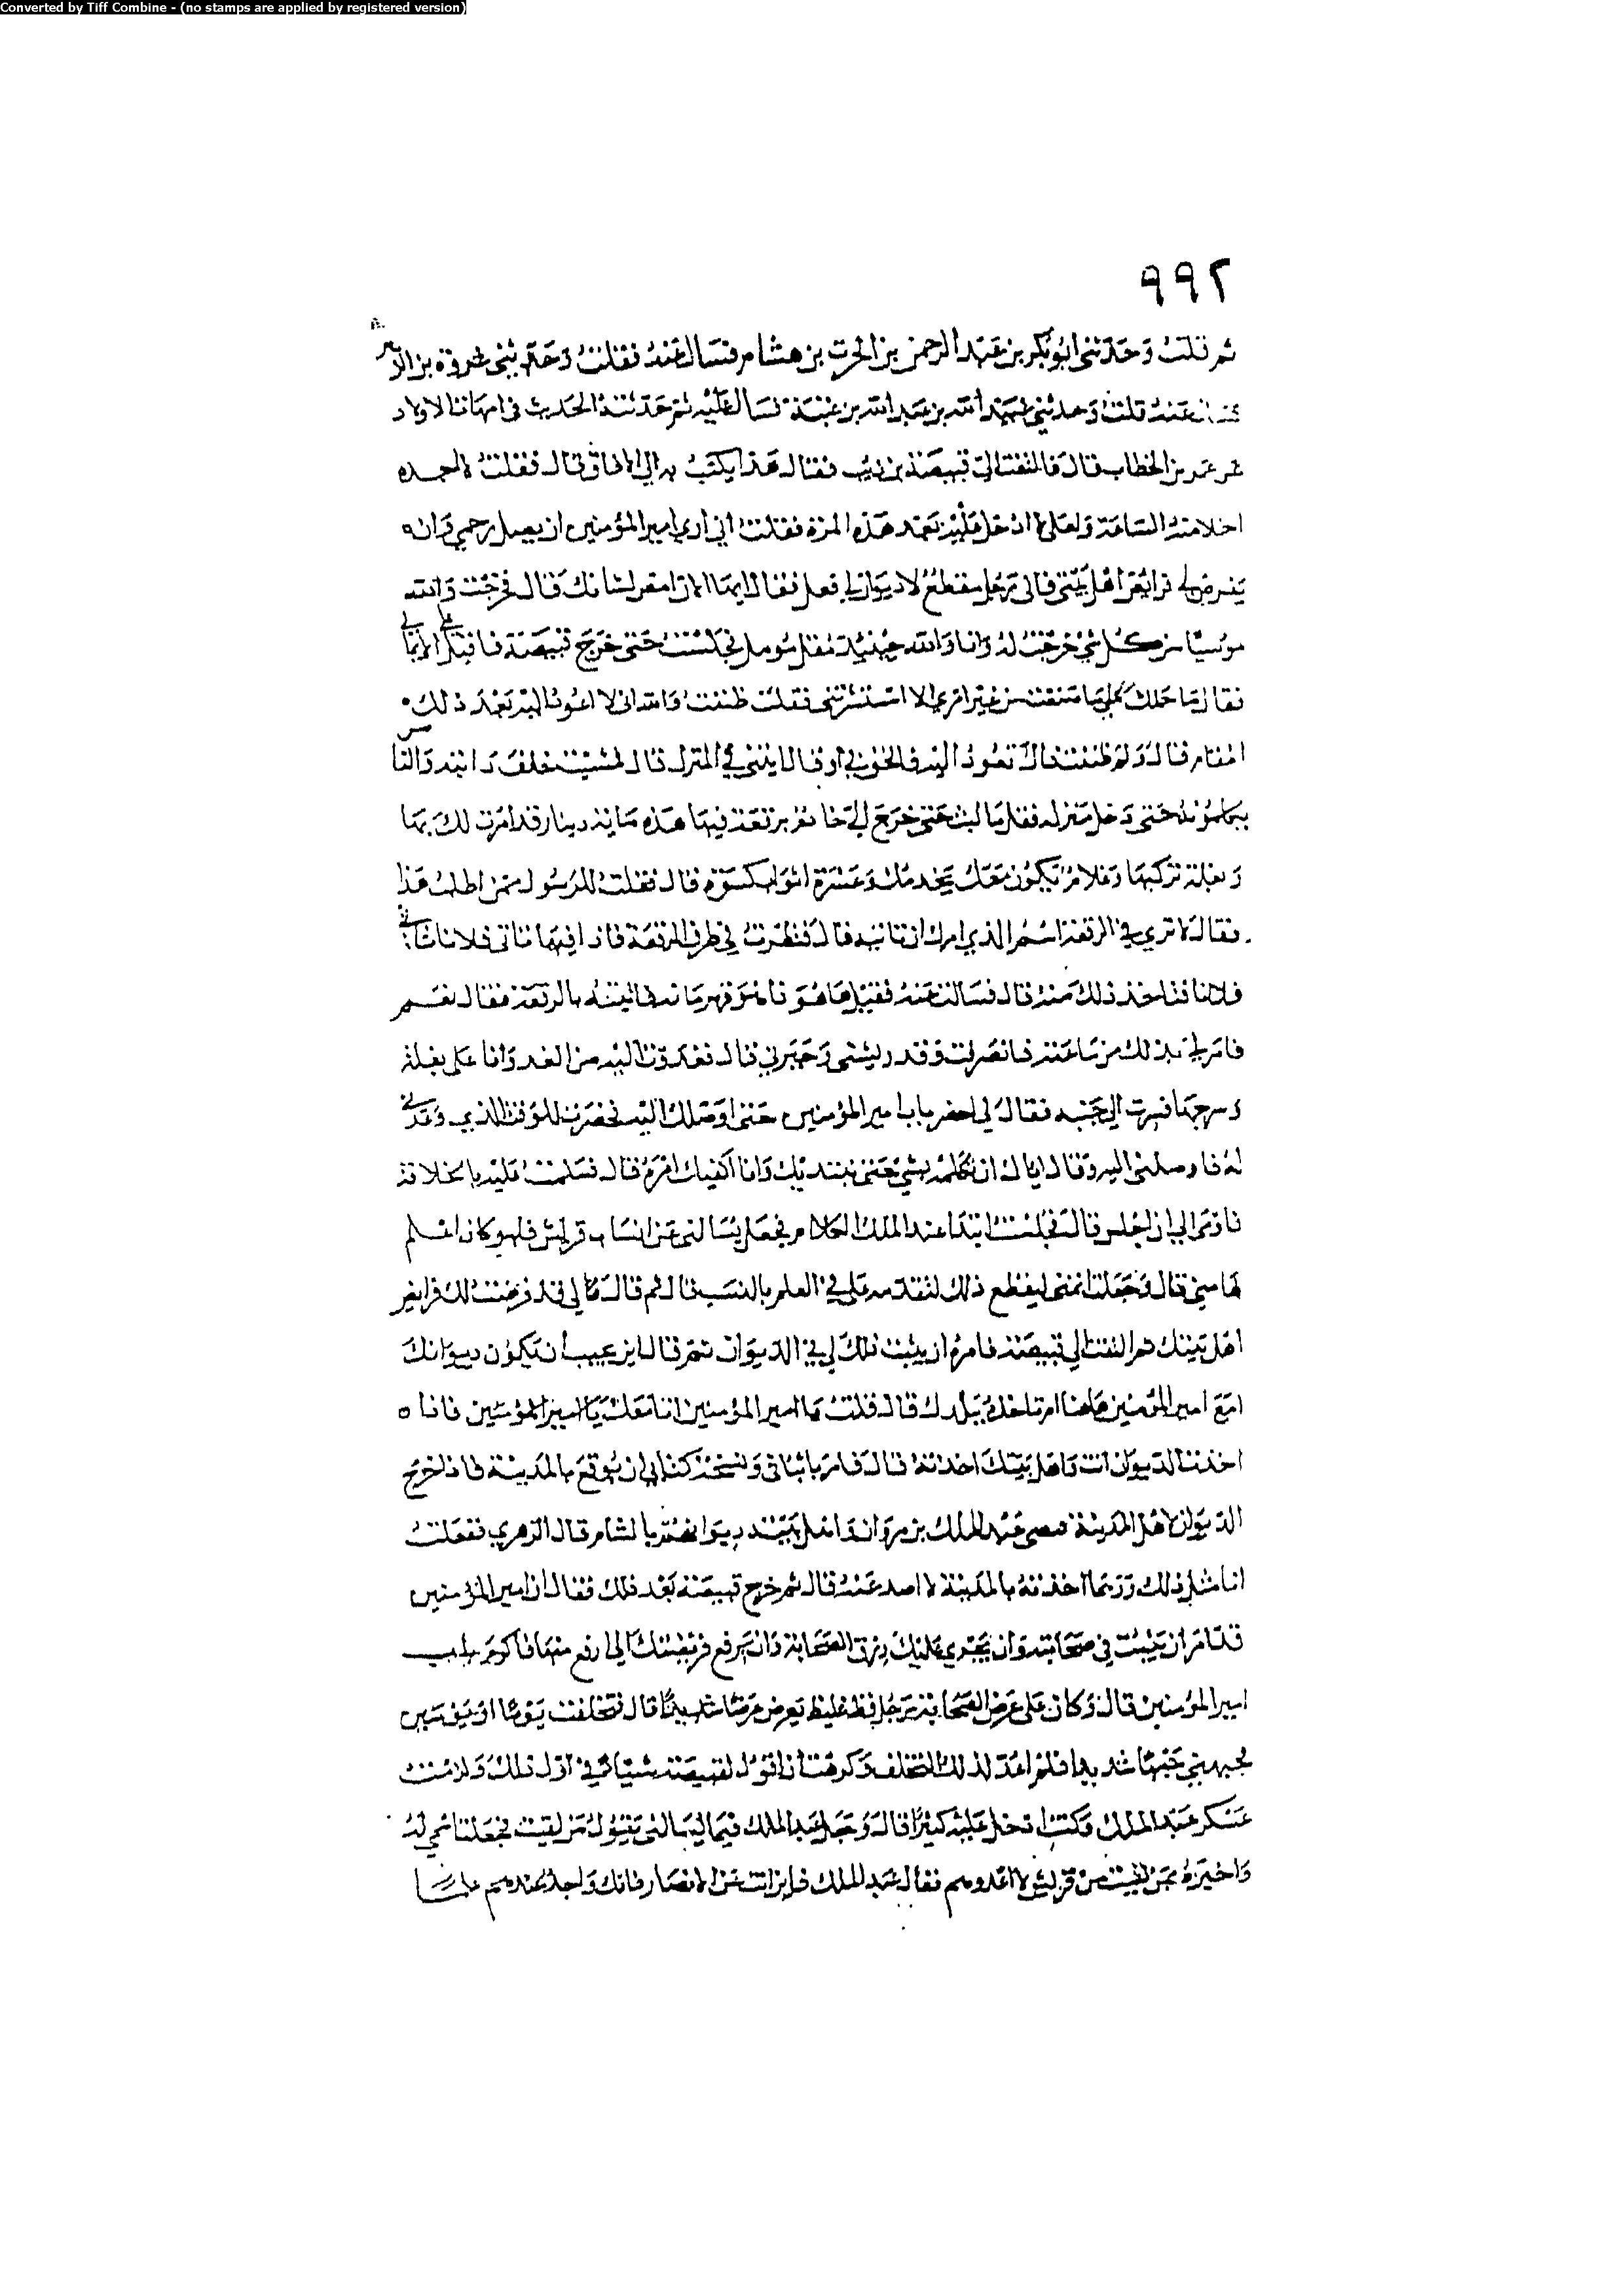 Converted by Tiff Combine - (no stamps are applied by registered version)
٩٩٢
ثم قلت وحدثني ابو بكر بن عبد الرحمن بن الحرث بن هشام فسال عنه فقلت وحدثني عروة بن الزبير
فسال عنه قلت وحدثني عبيد الله بن عبد الله بن عتبة فسال عليه ثم حدثته الحديث في امهات الاولاد
عن عمر بن الخطاب قال فالتفت الى قبيصة بن ذويب فقال هذا يكتب به الى الافاق قال فقلت لا اجده
اخلا منه الساعة ولعلي لا ادخل عليه بعد هذه المرة فقلت ان راى امير المؤمنين ان يصل رحمي وان
يفرض لي فرايض اهل بيتي فاني رجل منقطع لا ديوان لي فعل فقال ايها الان امض لشانك قال فخرجت والله
مؤيسا من كل شي خرجت له وانا والله حينئذ مقل مرمل فجلست حتى خرج قبيصة فاقبل علي لائما لي
فقال ما حملك على ما صنعت من غير امري الا استشرتني فقلت ظننت والله اني لا اعود اليه بعد ذلك
المقام قال ولم ظننت ذاك تعود اليه فالحق بي او قال ايتني في المنزل قال فمشيت خلف دابته والناس
يكلمونه حتى دخل منزله فقل ما لبث حتى خرج الي خادم برقعة فيها هذه ماية دينار قد امرت لك بها
وبغلة تركبها وغلام يكون معك يخدمك وعشرة اثواب كسوة قال فقلت للرسول ممن اطلب هذا
فقال الا ترى في الرقعة اسم الذي امرك ان تاتيه قال فنظرت في طرف الرقعة فاذا فيها تاتي فلانا
فلانا فتاخذ ذلك منه قال فسالت عنه فقيل ها هو ذا هو قهرمانه فاتيته بالرقعة فقال نعم
فامر لي بذلك من ساعته فانصرفت وقد ريشني وجبرني قال فغدوت اليه من الغد وانا على بغلته
وسرجها فسرت الى جنبه فقال لي احضر باب امير المؤمنين حتى اوصلك اليه فحضرت للوقت الذي وعدني
له فاوصلني اليه وقال اياك ان تكلمه بشي حتى يبتديك وانا اكفيك امره قال فسلمت عليه بالخلافة
فاومى الي ان اجلس قال فجلست ابتدا عبد الملك الكلام فجعل يسالني عن انساب قريش فلهو كان اعلم
بها مني قال وجعلت اتمنى ليقطع ذلك لتقدمه علي في العلم بالنسب قال ثم قال لي قد فرضت لك فرايض
اهل بيتك ثم التفت الى قبيصة فامره ان يثبت ذلك لي في الديوان ثم قال اين تحب ان تكون ديوانك
امع امير المؤمنين هاهنا ام تاخذه ببلدك قال قلت يا امير المؤمنين انا معك يا امير المؤمنين فاذا
اخذت الديوان انت واهل بيتك اخذته قال فامر باثباتي ونسخة كتابي ان يوقع بالمدينة فاذا خرج
الديوان لاهل المدينة قبض عبد الملك بن مروان واهل بيته ديوانهم بالشام قال الزهري ففعلت
انا مثل ذلك وربما اخذته بالمدينة لا اصد عنه قال ثم خرج قبيصة بعد ذلك فقال ان امير المؤمنين
قد امر ان تثبت في صحابته وان يجري عليك رزق الصحابة وان يرفع فريضتك الى ارفع منها فالزم باب
امير المؤمنين قال وكان على عرض الصحابة رجل فظ غليظ يعرض عرضا شديدا قال فتخلفت يوما او يومين
فجبهني جبها شديدا فلم اعد لذلك التخلف وكرهت ان اقول لقبيصة شيا في اول ذلك ولزمت
عسكر عبد الملك وكنت ادخل عليه كثيرا قال وجعل عبد الملك فيما يسالني يقول من لقيت فجعلت اسمي له
واخبره بمن لقيت من قريش لا اعدوهم فقال عبد الملك فاين انت عن الانصار فانك واجد عندهم علما